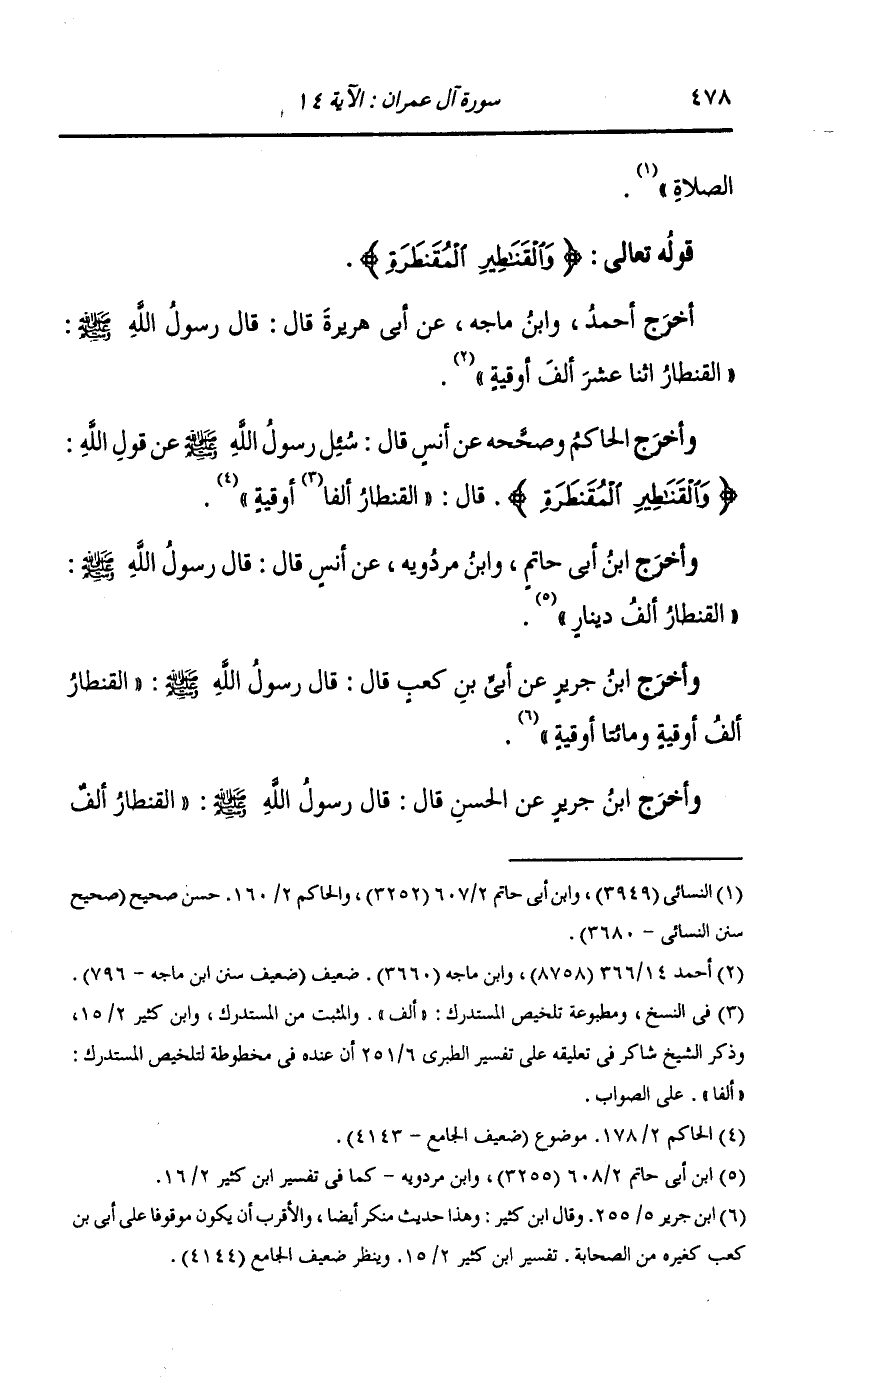 ٤٧٨ سورة آل عمران : الآية ١٤
الصلاةِ»(١) .
قولُه تعالى : ﴿وَٱلْقَنَٰطِيرِ ٱلْمُقَنطَرَةِ﴾ .
أخرَج أحمدُ ، وابنُ ماجه ، عن أبى هريرةَ قال : قال رسولُ اللَّهِ ﷺ :
«القنطارُ اثنا عشرَ ألفَ أوقيةٍ»(٢) .
وأخرَج الحاكمُ وصحَّحه عن أنسٍ قال : سُئِل رسولُ اللَّهِ ﷺ عن قولِ اللَّهِ :
﴿وَٱلْقَنَٰطِيرِ ٱلْمُقَنطَرَةِ﴾ . قال : «القنطارُ ألفا(٣) أوقيةٍ»(٤) .
وأخرَج ابنُ أبى حاتمٍ ، وابنُ مردُويه ، عن أنسٍ قال : قال رسولُ اللَّهِ ﷺ :
«القنطارُ ألفُ دينارٍ»(٥) .
وأخرَج ابنُ جريرٍ عن أبىِّ بنِ كعبٍ قال : قال رسولُ اللَّهِ ﷺ : «القنطارُ
ألفُ أوقيةٍ ومائتا أوقيةٍ»(٦) .
وأخرَج ابنُ جريرٍ عن الحسنِ قال : قال رسولُ اللَّهِ ﷺ : «القنطارُ ألفٌ
(١) النسائى (٣٩٤٩) ، وابن أبى حاتم ٦٠٧/٢ (٣٢٥٢) ، والحاكم ٢/ ١٦٠. حسن صحيح (صحيح
سنن النسائى - ٣٦٨٠) .
(٢) أحمد ٣٦٦/١٤ (٨٧٥٨) ، وابن ماجه (٣٦٦٠) . ضعيف (ضعيف سنن ابن ماجه - ٧٩٦) .
(٣) فى النسخ ، ومطبوعة تلخيص المستدرك : «ألف» . والمثبت من المستدرك ، وابن كثير ٢/ ١٥،
وذكر الشيخ شاكر فى تعليقه على تفسير الطبرى ٢٥١/٦ أن عنده فى مخطوطة لتلخيص المستدرك :
«ألفا» . على الصواب .
(٤) الحاكم ١٧٨/٢. موضوع (ضعيف الجامع - ٤١٤٣) .
(٥) ابن أبى حاتم ٦٠٨/٢ (٣٢٥٥) ، وابن مردويه - كما فى تفسير ابن كثير ١٦/٢.
(٦) ابن جرير ٥/ ٢٥٥. وقال ابن كثير : وهذا حديث منكر أيضا ، والأقرب أن يكون موقوفا على أبى بن
كعب كغيره من الصحابة . تفسير ابن كثير ٢/ ١٥. وينظر ضعيف الجامع (٤١٤٤) .